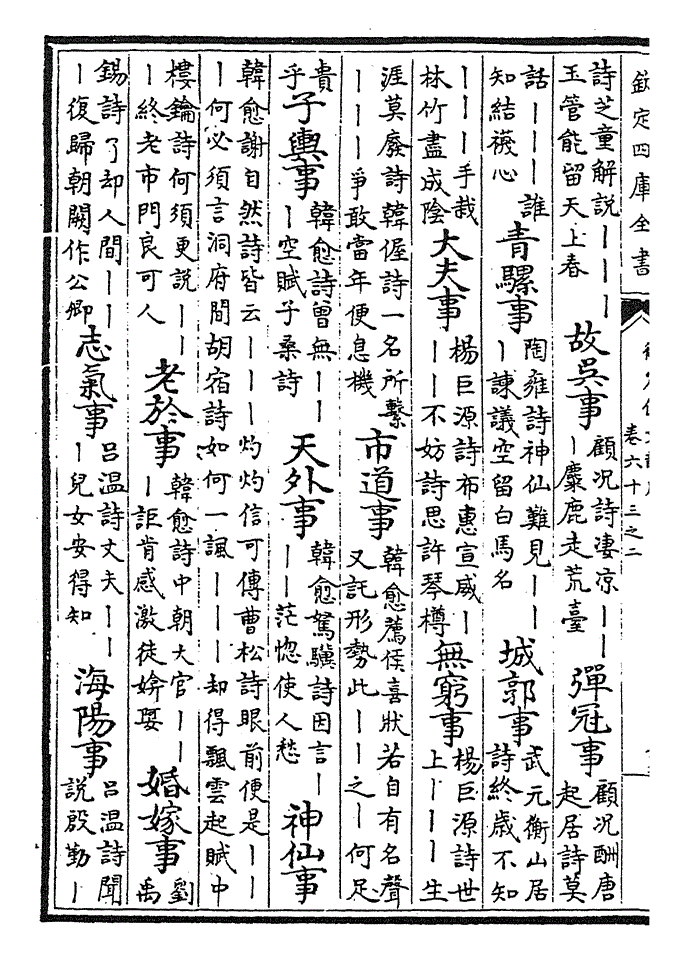 欽定四庫全書
卷六十三之二
詩芝童解說丨丨丨玉管能留天上春 故吳事 顧况詩凄凉丨丨丨麋鹿走荒臺 彈冠事 顧况酬唐起居詩莫
話丨丨丨誰知結襪心 青騾事 陶雍詩神仙難見丨丨丨諫議空留白馬名 城郭事 武元衡山居詩終歲不知
丨丨丨手栽林竹盡成陰 大夫事 楊巨源詩布惠宣威丨丨丨不妨詩思許琴樽 無窮事 楊巨源詩世上丨丨丨生
涯莫廢詩韓偓詩一名所繫丨丨丨爭敢當年便息機 市道事 韓愈薦侯喜狀若自有名聲又託形勢此丨丨之丨何足
貴乎 子輿事 韓愈詩曾無丨丨丨空賦子桑詩 天外事 韓愈駑驥詩因言丨丨丨茫惚使人愁 神仙事
韓愈謝自然詩皆云丨丨丨灼灼信可傳曹松詩眼前便是丨丨丨何必須言洞府間胡宿詩如何一諷丨丨丨却得飄雲起賦中
樓鑰詩何須更說丨丨丨終老市門良可人 老於事 韓愈詩中朝大官丨丨丨詎肯感激徒媕娿 婚嫁事 劉禹
錫詩了却人間丨丨丨復歸朝闕作公卿 志氣事 呂溫詩丈夫丨丨丨兒女安得知 海陽事 呂溫詩聞說殷勤丨